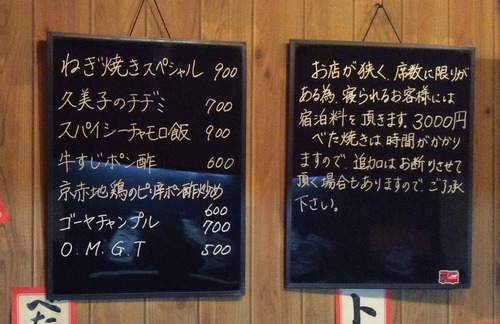 ねぎ焼きスペシャル 900
久美子のチヂミ 700
スパイシーチャモロ飯 900
牛すじポン酢 600
京赤地鶏のピリ辛ポン酢炒め
600
ゴーヤチャンプル 700
O.M.G.T 500
お店が狭く、席数に限りが
ある為、寝られるお客様には
宿泊料を頂きます。3000円
べた焼きは時間がかかり
ますので、追加はお断りさせて
頂く場合もありますので、ご了承
下さい。
べた
ト